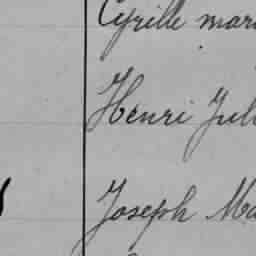 Cyrille mari
Henri Jul
Joseph Ma